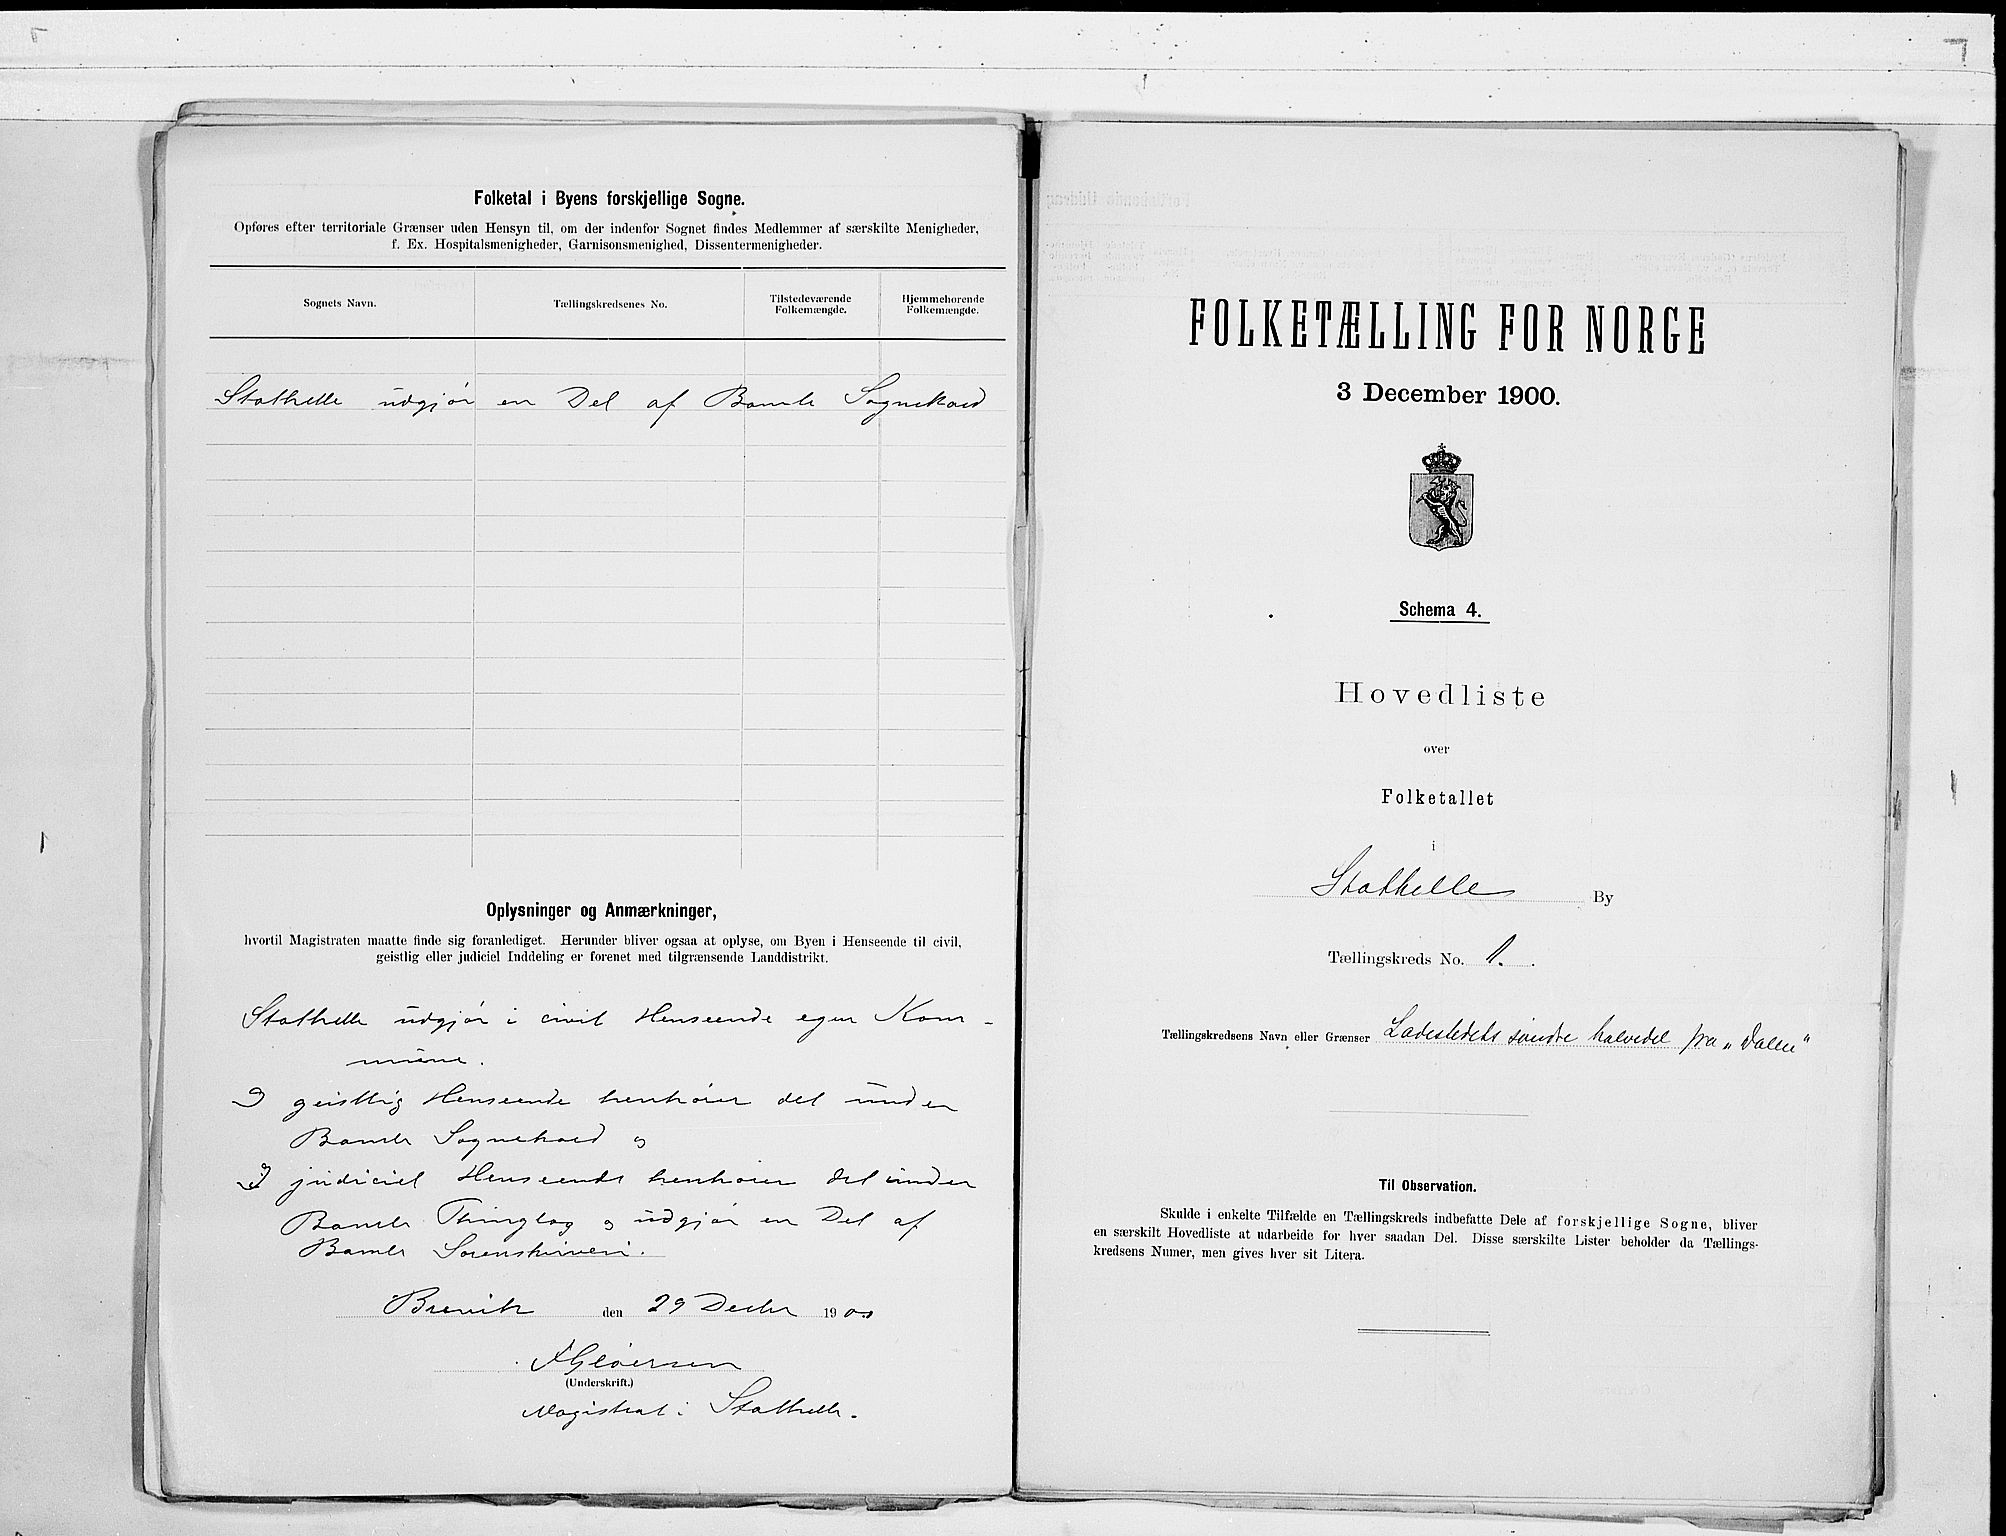 Folketal i Byens forskjellige Sogne.
Opføres efter territoriale Grænser uden Hensyn til, om der indenfor Sognet findes Medlemmer af særskilte Menigheder,
f. Ex. Hospitalsmenigheder, Garnisonsmenighed, Dissentermenigheder.
Sognets Navn.
Tællingskredsenes No.
Tilstedeværende Folkemængde.
Hjemmehørende Folkemængde.
Stathelle udgjør en Del af Bamle Sognekald
Oplysninger og Anmærkninger,
hvortil Magistraten maatte finde sig foranlediget. Herunder bliver ogsaa at oplyse, om Byen i Henseende til civil,
geistlig eller judiciel Inddeling er forenet med tilgrænsende Landdistrikt.
Stathelle udgjør i civil Henseende egen Kom-
mune.
I geistlig Henseende henhører det under
Bamle Sognekald og
I judiciel Henseende henhører det under
Bamle Thinglag og udgjør en Del af
Bamle Sorenskriveri.
Brevik den 29 Decbr 1900
Gløersen
(Underskrift.)
Magistrat i Stathelle.
FOLKETÆLLING FOR NORGE
3 December 1900.
Schema 4.
Hovedliste
over
Folketallet
i
Stathelle By
Tællingskreds No. 1.
Tællingskredsens Navn eller Grænser Ladestedets søndre halvdel fra „Dalen“
Til Observation.
Skulde i enkelte Tilfælde en Tællingskreds indbefatte Dele af forskjellige Sogne, bliver
en særskilt Hovedliste at udarbeide for hver saadan Del. Disse særskilte Lister beholder da Tællings-
kredsens Numer, men gives hver sit Litera.